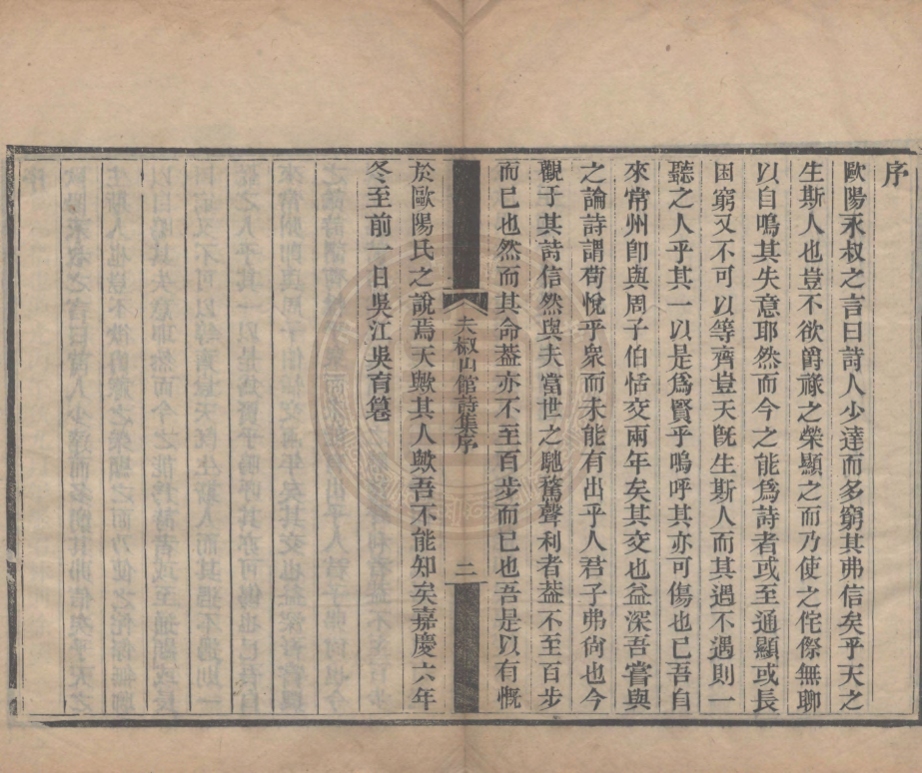 序
歐陽永叔之言曰詩人少達而多窮其弗信矣乎天之
生斯人也豈不欲爵祿之榮顯之而乃使之侘傺無聊
以自鳴其失意耶然而今之能爲詩者或至通顯或長
困窮又不可以等齊豈天旣生斯人而其遇不遇則一
聽之人乎其一以是爲賢乎嗚呼其亦可傷也已吾自
來常州卽與周子伯恬交兩年矣其交也益深吾嘗與
之論詩謂苟悅乎衆而未能有出乎人君子弗尙也今
觀于其詩信然與夫當世之馳騖聲利者葢不至百步
而已也然而其命葢亦不至百步而已也吾是以有慨
夫椒山館詩集序
二
於歐陽氏之說焉天歟其人歟吾不能知矣嘉慶六年
冬至前一日吳江吳育篹